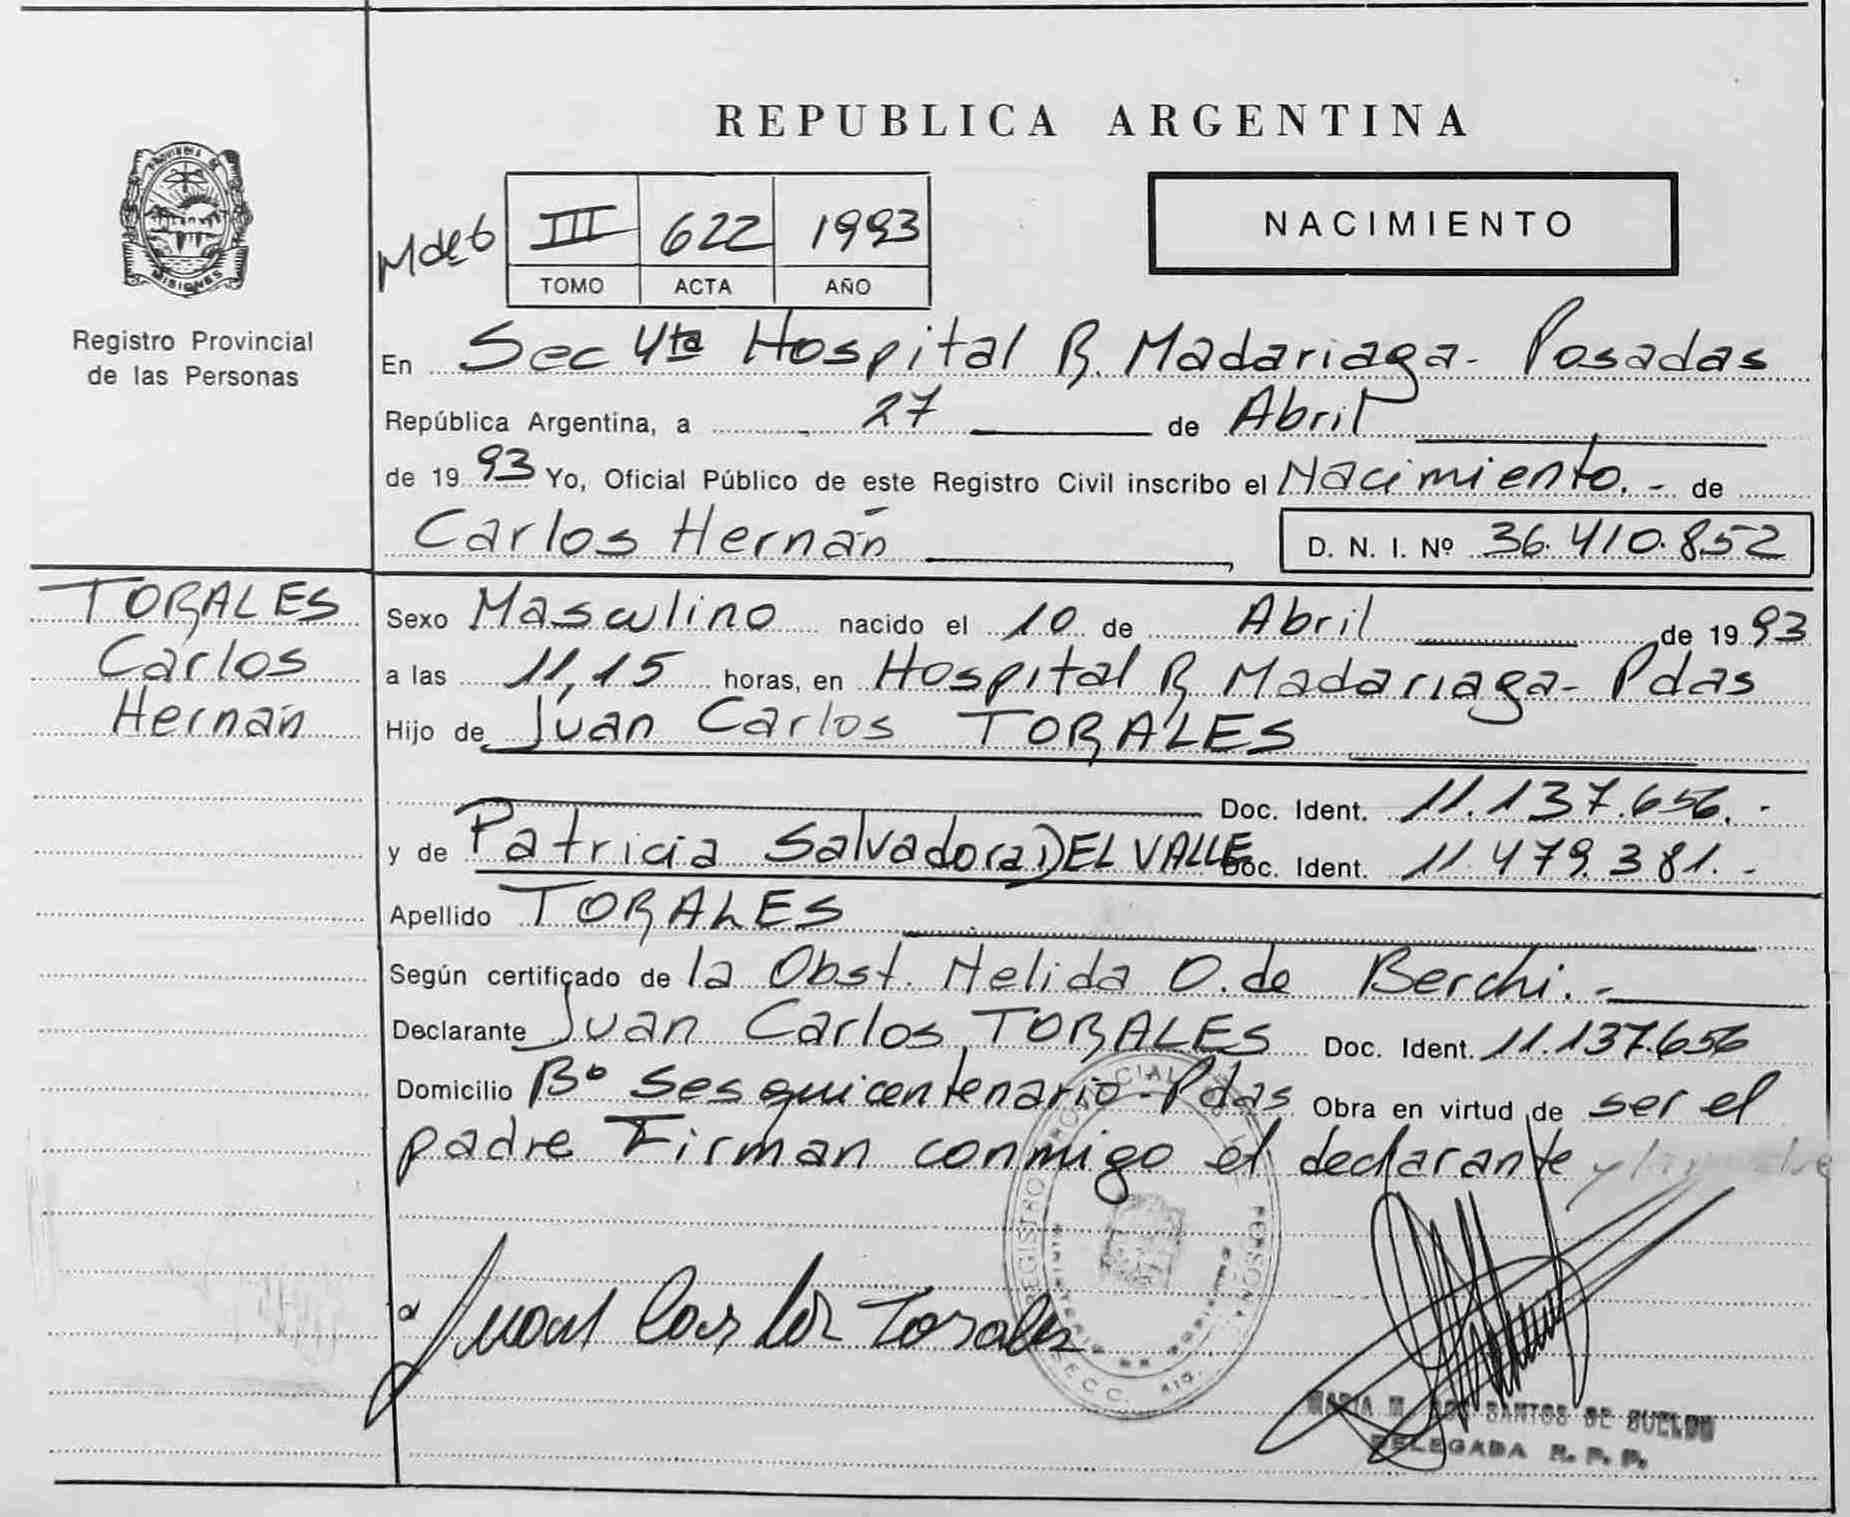 REPUBLICA ARGENTINA
PROVINCIA DE
MISIONES
Registro Provincial
de las Personas
III 622 1993
TOMO ACTA AÑO
NACIMIENTO
En Sec 4ta Hospital R. Madariaga - Posadas
República Argentina, a 27 de Abril
de 19 93 Yo, Oficial Público de este Registro Civil inscribo el Nacimiento.- de
Carlos Hernán D. N. I. Nº 36.410.852
TORALES
Carlos
Hernán
Sexo Masculino nacido el 10 de Abril de 19 93
a las 11,15 horas, en Hospital R Madariaga - Pdas
Hijo de Juan Carlos TORALES
Doc. Ident. 11.137.656.-
y de Patricia Salvadora DEL VALLE Doc. Ident. 11.479.381.-
Apellido TORALES
Según certificado de la Obst. Nelida O. de Berchi.-
Declarante Juan Carlos TORALES Doc. Ident. 11.137.656
Domicilio Bº Sesquicentenario - Pdas Obra en virtud de ser el
padre Firman conmigo el declarante
Juan Carlos Torales
REGISTRO PROVINCIAL DE PERSONAS
SECC.
MARIA M. DOS SANTOS DE
DELEGADA R. P. P.